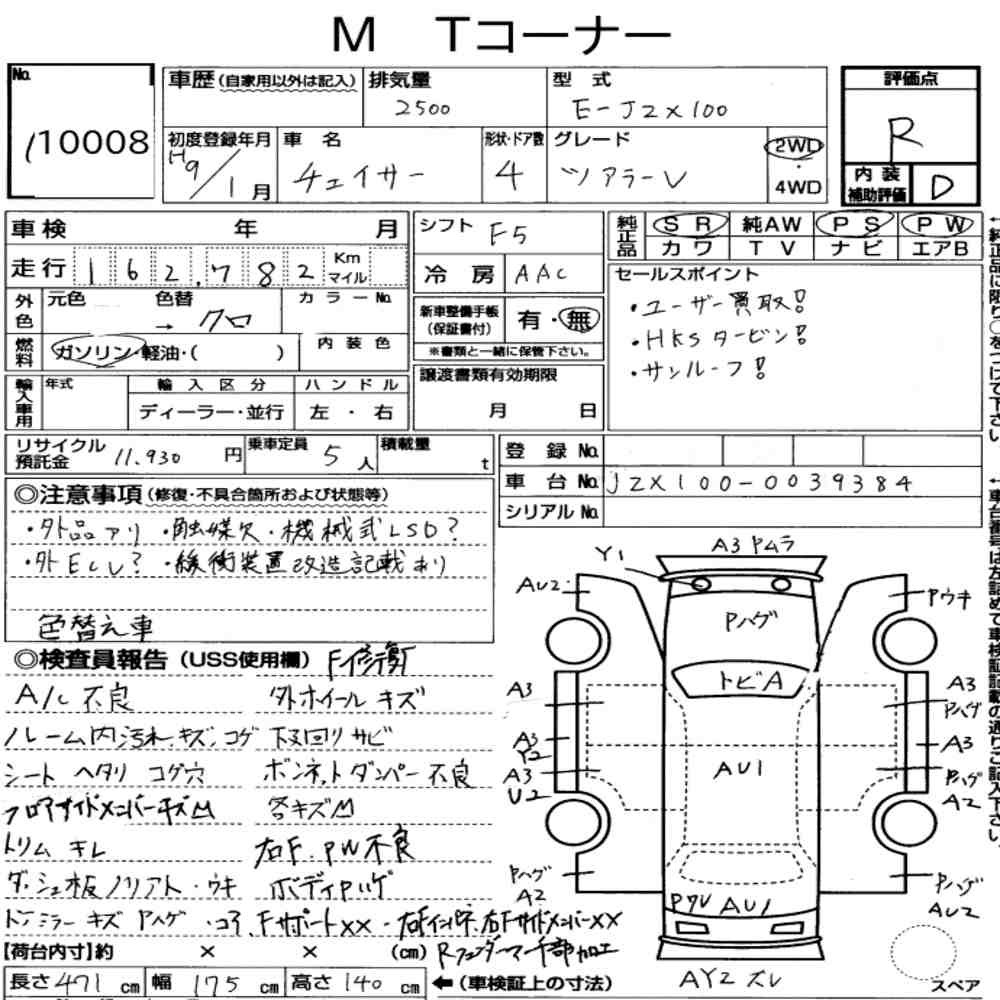 M Tコーナー
No. 110008
車歴(自家用以外は記入) 排気量 2500 型式 E-JZX100
評価点 R
初度登録年月 H9/1月 車名 チェイサー 形状・ドア数 4 グレード ツアラーV 2WD・4WD
内装補助評価 D
車検 年 月
走行 162,782 Km マイル
外色 元色 色替 → クロ カラーNo.
燃料 ガソリン・軽油・( ) 内装色
輸入車用 年式 輸入区分 ディーラー・並行 ハンドル 左・右
シフト F5
冷房 AAC
新車整備手帳(保証書付) 有・無
※書類と一緒に保管下さい。
譲渡書類有効期限 月 日
純正品 SR 純AW PS PW
カワ TV ナビ エアB
セールスポイント
・ユーザー買取!
・HKSタービン!
・サンルーフ!
リサイクル預託金 11.930円 乗車定員 5人 積載量 t
登録No.
車台No. JZX100-0039384
シリアルNo.
◎注意事項(修復・不具合箇所および状態等)
・外品アリ ・触媒欠 ・機械式LSD?
・外ECU? ・緩衝装置改造記載あり
色替え車
◎検査員報告(USS使用欄) F修復
A/C 不良 外ホイールキズ
ルーム内汚れ、キズ、コゲ 下回りサビ
シート ヘタリ コゲ穴 ボンネットダンパー不良
フロアサイドメンバーキズM 各キズM
トリム キレ 右F.PW不良
ダッシュ板ノリアト・ウキ ボディPハゲ
ドアミラーキズ Pハゲ ・コアサポートXX ・右Fインパネ、右FサイドメンバーXX
Rフェンダーアーチ部加工
【荷台内寸】約 × × (cm)
長さ471cm 幅175cm 高さ140cm ←(車検証上の寸法)
Y1 A3 Pムラ
AU2 Pウキ
Pハゲ
トビA
A3 A3 Pハゲ
A3 Y2 AU1 A3
A3 U2 Pハゲ A2
Pハゲ A2 Pハゲ AU2
PワレAU1
AY2 ズレ
スペア
←純正品に限り○をつけて下さい。
←車台番号は左詰めで車検証記載の通りご記入下さい。